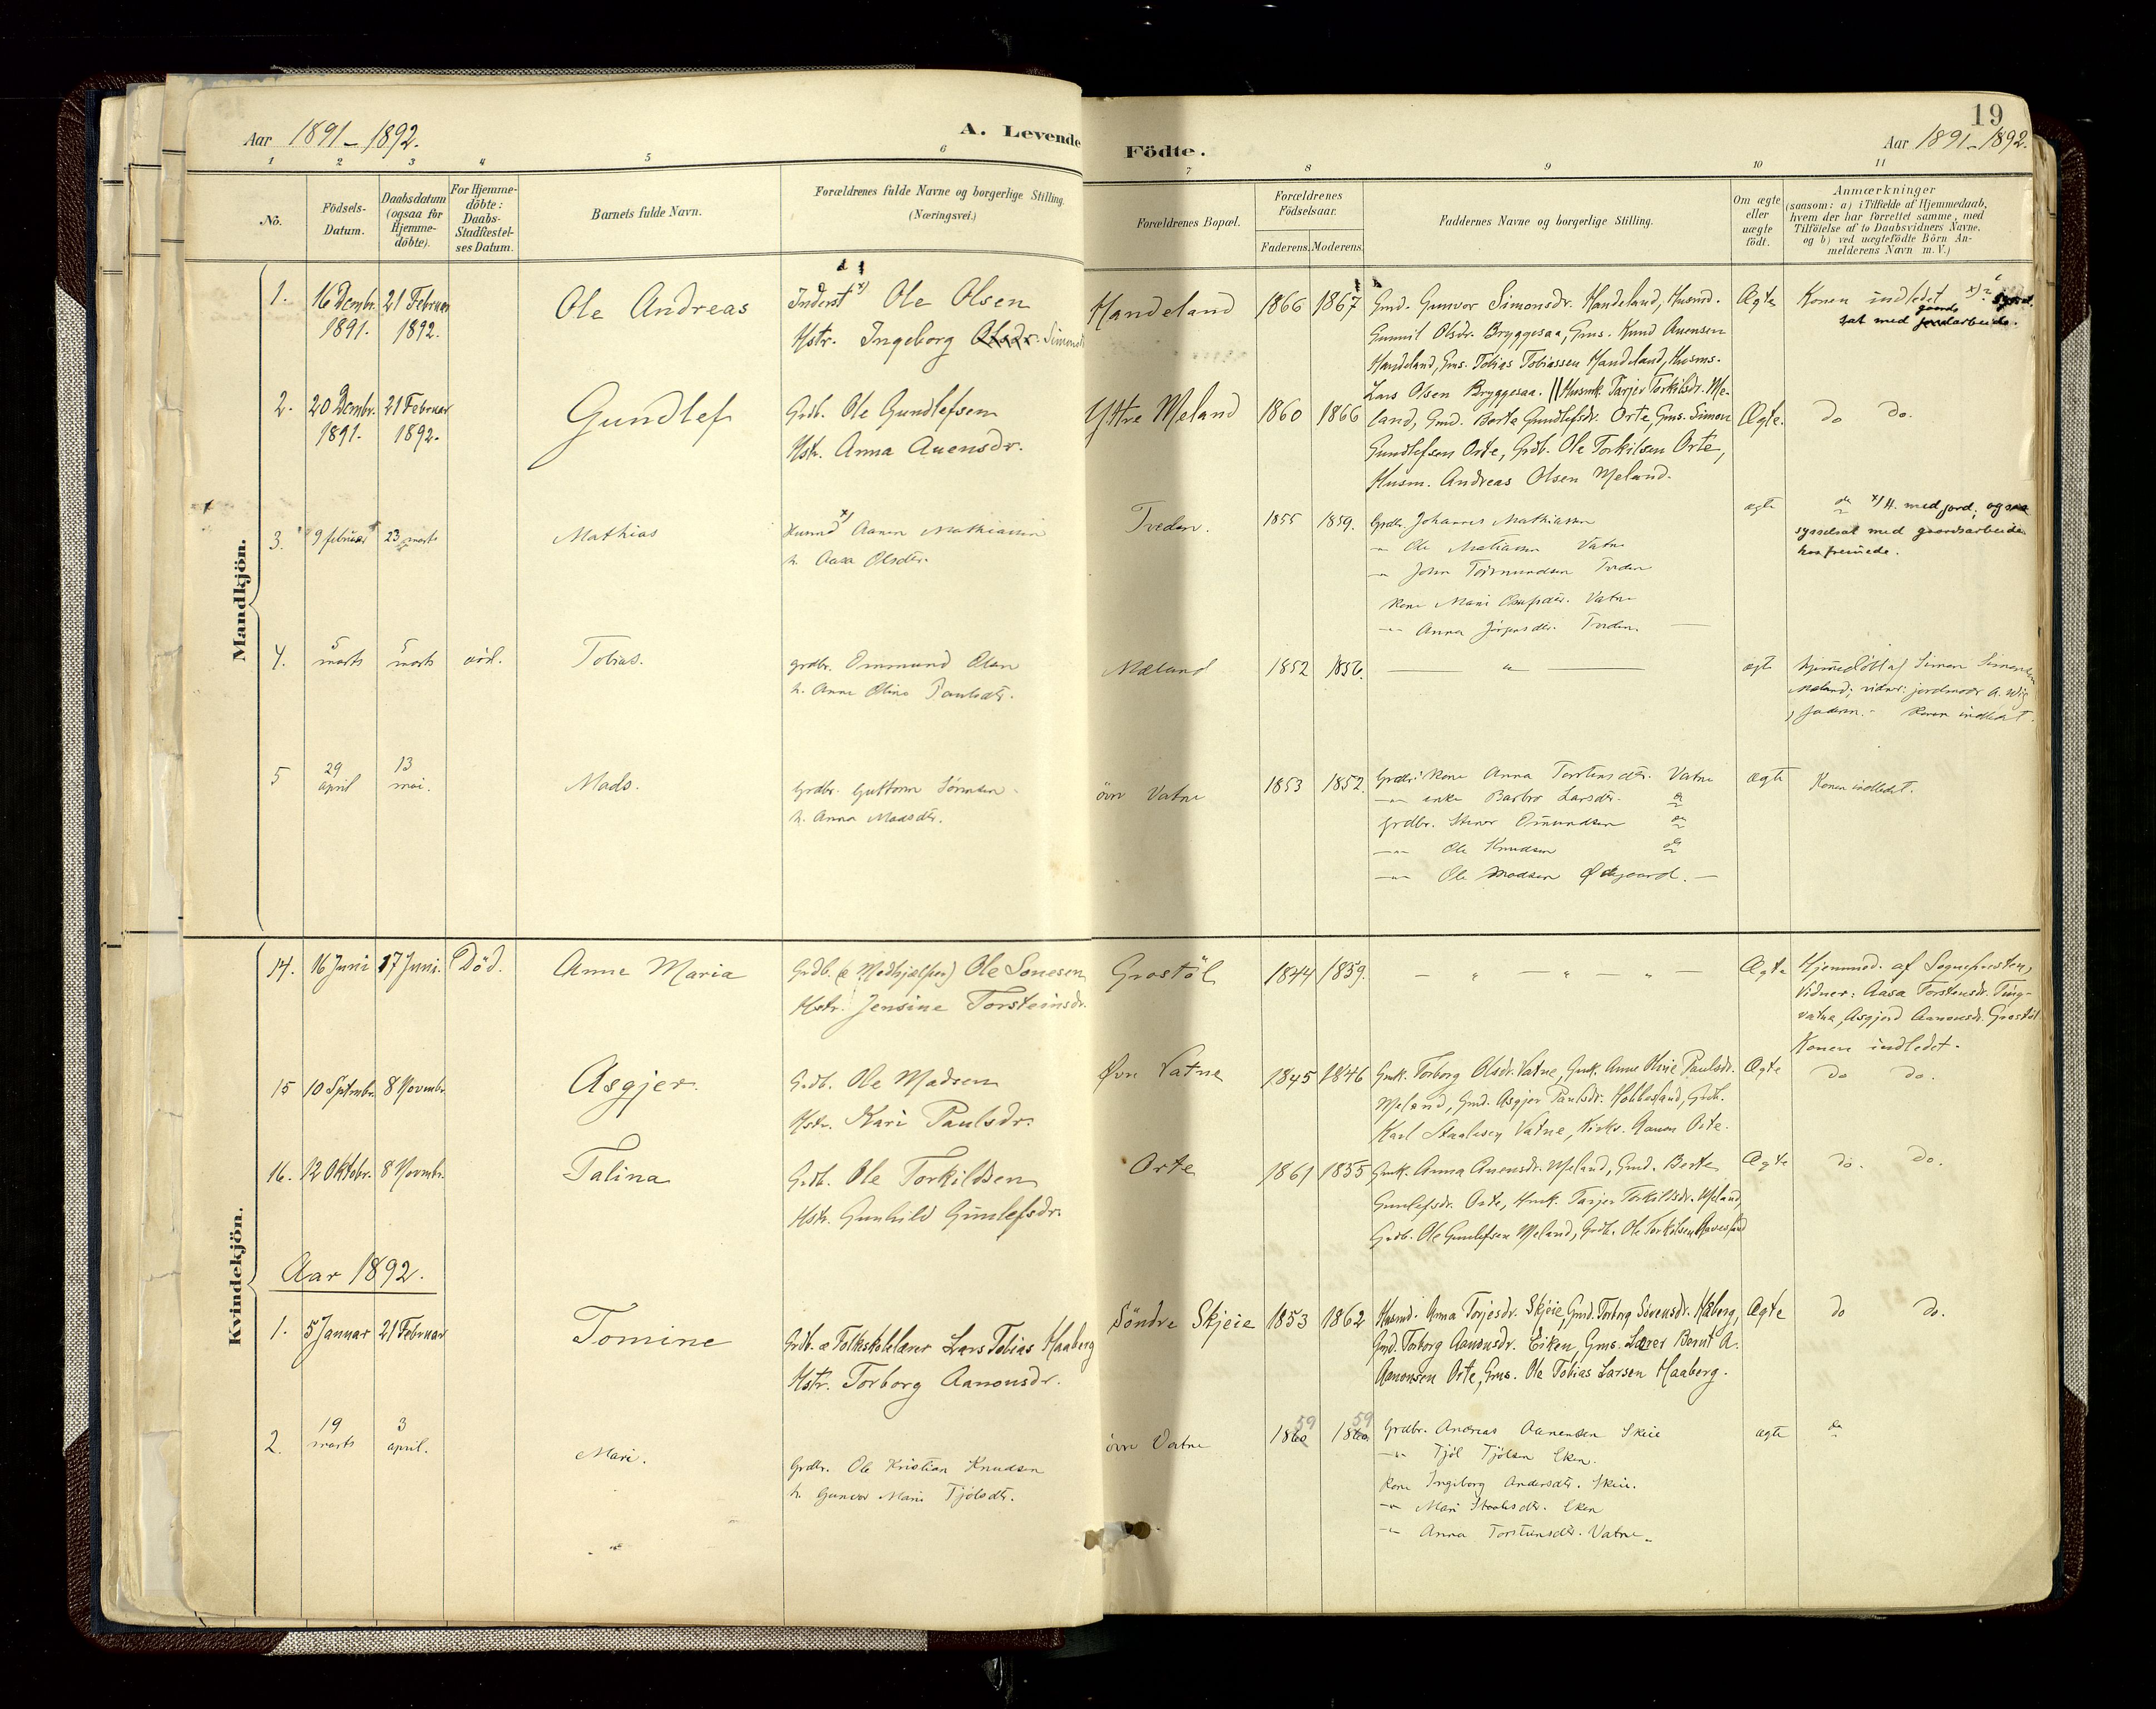 19
Aar 1891-1892. A. Levende Födte. Aar 1891-1892.
1 2 3 4 5 6 7 8 9 10 11
No.
Födsels-
Datum.
Daabsdatum
(ogsaa for
Hjemme-
döbte).
For Hjemme-
döbte:
Daabs-
Stadfæstel-
ses Datum.
Barnets fulde Navn.
Forældrenes fulde Navne og borgerlige Stilling.
(Næringsvei.)
Forældrenes Bopæl.
Forældrenes
Födselsaar.
Faderens. Moderens.
Faddernes Navne og borgerlige Stilling.
Om ægte
eller
uægte
födt.
Anmærkninger
(saasom: a) i Tilfælde af Hjemmedaab,
hvem der har forrettet samme, med
Tilföielse af to Daabsvidners Navne.
og b) ved uægtefödte Börn An-
melderens Navn m. V.)
Mandkjön.
1.
16 Dembr.
1891.
21 Februar
1892.
Ole Andreas
Inderst x) Ole Olsen
Hstr. Ingeborg Olsdr. Simonsd
Handeland
1866 1867
Gmd. Gunvor Simonsdr. Handeland, Husmd.
Gunnil Olsdr. Bryggesaa, Gms. Knud Auensen
Handeland, Gms. Tobias Tobiassen Handeland, Husms.
Lars Olsen Bryggesaa.
Ægte
Konen indledet x)
sat med gaards jordarbeide.
2.
20 Dembr.
1891.
21 Februar
1892.
Gundlef
Grdb. Ole Gundlefsen
Hstr. Anna Auensdr.
Yttre Meland
1860 1866
|| Husmk. Tarjer Torkilsdr. Me-
land, Gmd. Berta Gundlefsdr. Orte, Gms. Simon
Gundlefsen Orte, Grdb. Ole Torkilsen Orte,
Husm. Andreas Olsen Meland.
Ægte.
do do.
3.
9 februar
23 marts
Mathias
Husmd x) Aanen Mathiassen
h. Aasa Olsdtr.
Tveden.
1855 1859.
Grdbr. Johannes Mathiassen
-"- Ole Mathiassen Vatne
-"- John Tormundsen Tveden
Kone Mari Vatne
-"- Anna Jörgensdtr. Tveden.
ægte
do x/ H. med jord; ogsaa
sysselsat med gaardsarbeide
hos fremede.
4.
5
marts
5
marts
död.
Tobias.
grdbr. Ommund Olsen
h. Anne Oline Paulsdtr.
Mæland
1852 1856.
"
ægte
hjemmedöbt af Simon Simonsen
Mæland; vidner: jordmoder A. Wig
, faderen. - Konen indledet.
5
29
april
13
mai.
Mads.
Grdbr. Guttorm Sörensen
h. Anna Madsdtr.
övre Vatne
1853 1852.
Grdbr. Kone Anna Torstensdtr. Vatne
-"- enke Barbro Larsdtr. do
grdbr. Stener Omundsen do
-"- Ole Knudsen do
-"- Ole Madsen Ødegaard.
ægte
Konen indledet.
Kvindekjön.
14.
16 Juni
17 Juni.
Död.
Anne Maria
Grdb. (& Medhjælper) Ole Sonesen
Hstr. Jensine Torsteinsdr.
Grostöl
1844 1859.
- " - " - " -
Ægte
Hjemmed. af Sognepresten,
Vidner: Aasa Torstensdr. Ting-
vatne, Asgjerd Aanonsdr. Grostöl
Konen indledet.
15
10 Septmbr.
8 Novembr.
Asgjer.
Grdb. Ole Madsen
Hstr. Kari Paulsdr.
Øvre Vatne
1845 1846
Gmk. Torborg Olsdr. Vatne, Gmk. Anne Oline Paulsdr.
Meland, Gmd. Asgjer Paulsdr. Hobbesland, Grdb.
Karl Staalesen Vatne, Kirks. Aanen Orte.
Ægte
do do.
16.
12 Oktobr.
8 Novmbr.
Talina
Grdb. Ole Torkildsen
Hstr. Gunhild Gunlefsdr.
Orte
1861 1855
Gmk. Anna Auensdr. Meland, Gmd. Berte
Gunlefsdr. Orte, Hmk. Tarjer Torkildsdr. Meland,
Grdb. Ole Gunlefsen Meland, Grdb. Ole Torkilsen
Ægte
do. do.
Aar 1892.
1.
5 Januar
21 Februar
Tomine
Grdb. & Folkeskolelærer Lars Tobias Haaberg
Hstr. Torborg Aanonsdr.
Söndre Skjeie
1853 1862
Husmd. Anna Torjesdr. Skjeie, Gmd. Torborg Sirensdr. Haaberg,
Gmd. Torborg Aanonsdr. Eiken, Gms. Lærer Bernt A.
Aanonsen Orte, Gms. Ole Tobias Larsen Haaberg.
Ægte
do do.
2.
19
marts
3
april.
Mari.
Grdbr. Ole Kristian Knudsen
h. Gunvor Mari Tjölsdtr.
övre Vatne
1860 59 1860 59
Grdbr. Andreas Aanensen Skeie
-"- Tjöl Tjölsen Eken.
Kone Ingeborg Andersdtr. Skeie.
-"- Mari Staalesdtr. Eken
-"- Anna Torstensdtr. Vatne.
ægte
do